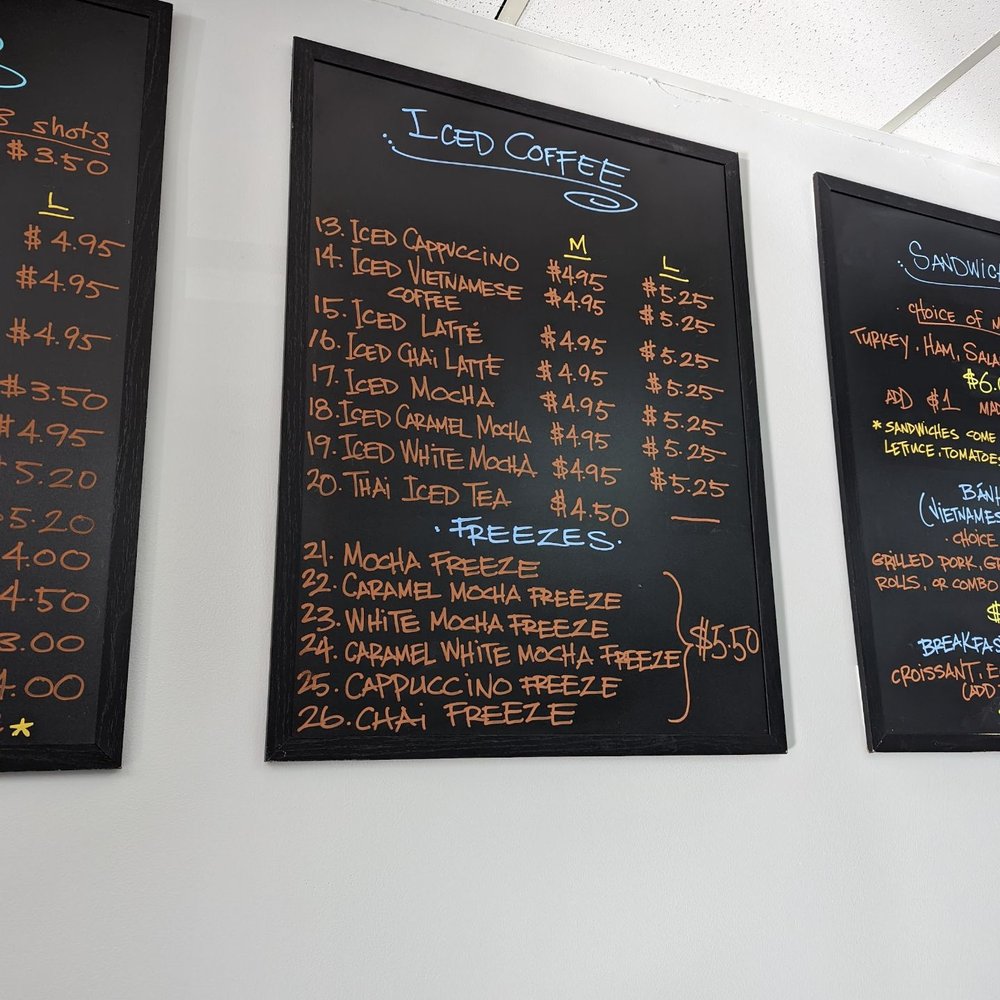 3 shots
$3.50
L
$4.95
$4.95
$4.95
$3.50
$4.95
$5.20
$5.20
4.00
4.50
3.00
4.00
*
ICED COFFEE
M L
13. ICED CAPPUCCINO $4.95 $5.25
14. ICED VIETNAMESE $4.95 $5.25
COFFEE
15. ICED LATTÉ $4.95 $5.25
16. ICED CHAI LATTE $4.95 $5.25
17. ICED MOCHA $4.95 $5.25
18. ICED CARAMEL MOCHA $4.95 $5.25
19. ICED WHITE MOCHA $4.95 $5.25
20. THAI ICED TEA $4.50 —
· FREEZES ·
21. MOCHA FREEZE
22. CARAMEL MOCHA FREEZE
23. WHITE MOCHA FREEZE
24. CARAMEL WHITE MOCHA FREEZE
25. CAPPUCCINO FREEZE
26. CHAI FREEZE
$5.50
SANDWIC
· CHOICE OF
TURKEY, HAM, SALA
$6.
ADD $1
* SANDWICHES COME
LETTUCE, TOMATOES
BÁNH
(VIETNAMES
· CHOICE
GRILLED PORK, GR
ROLLS, OR COMBO
$
BREAKFAS
CROISSANT, E
(ADD